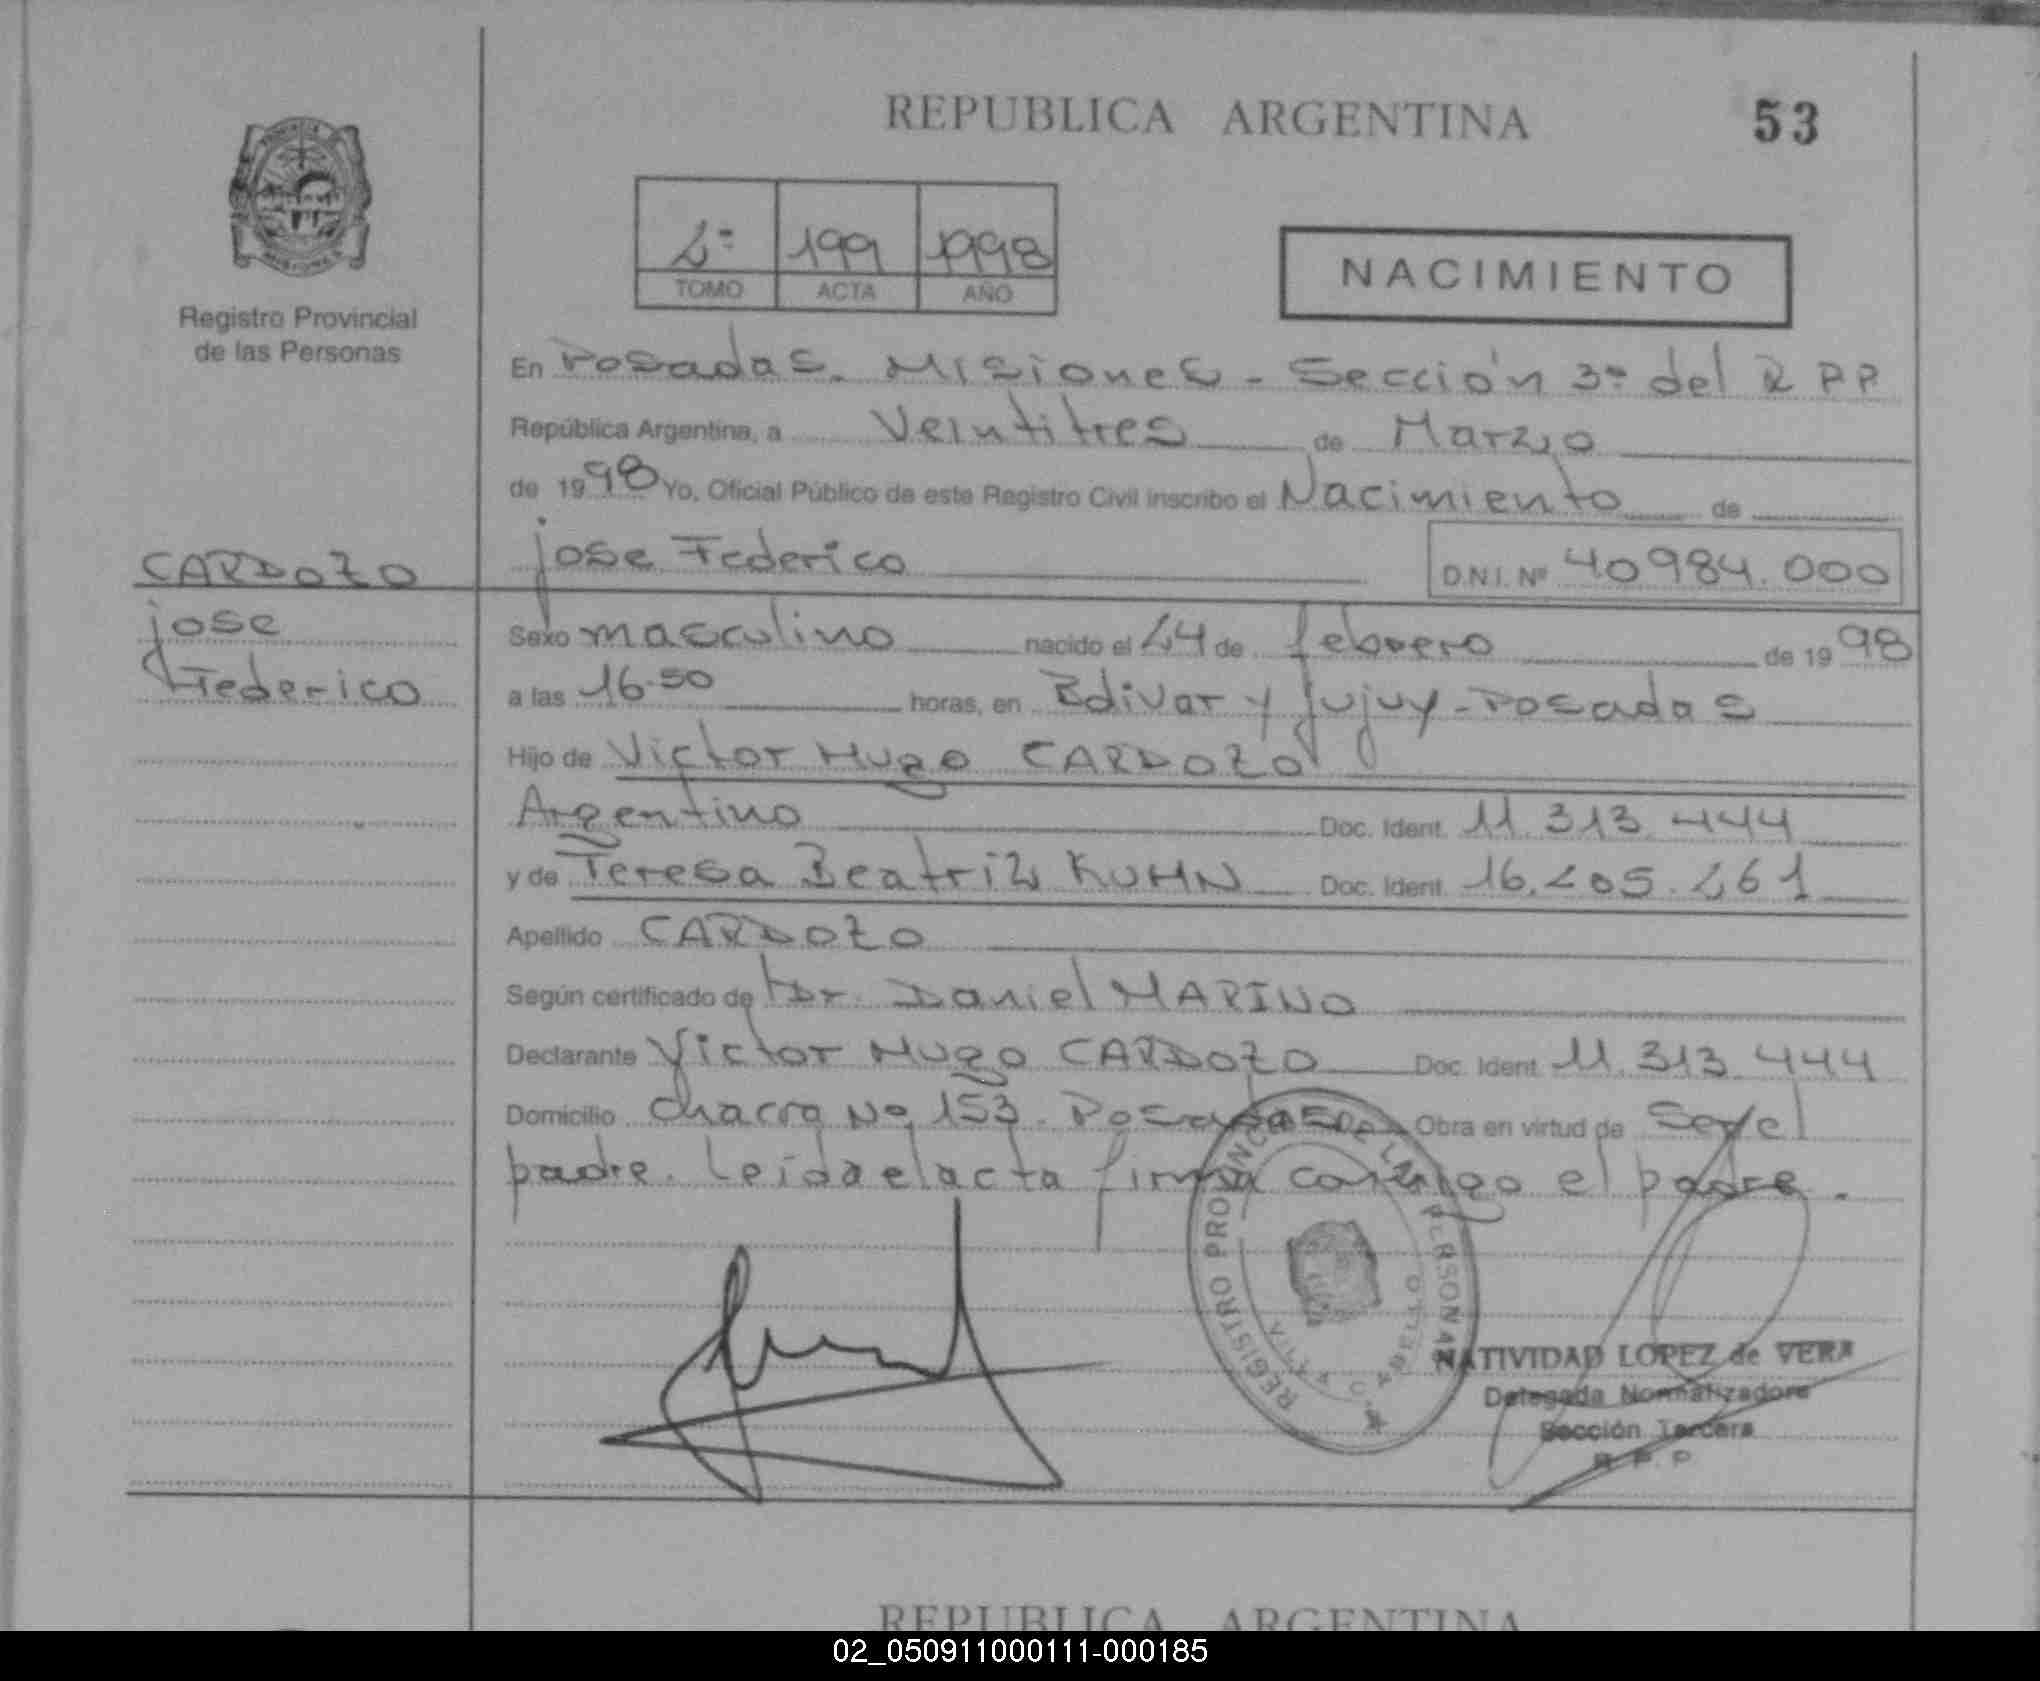 REPUBLICA ARGENTINA
53
2º 199 1998
TOMO ACTA AÑO
NACIMIENTO
Registro Provincial
de las Personas
En Posadas. Misiones - Sección 3º del R P P
República Argentina, a Veintitres de Marzo
de 1998 Yo, Oficial Público de este Registro Civil inscribo el Nacimiento de
jose Federico D.N.I. Nº 40984.000
CARDOZO
jose
Federico
Sexo masculino nacido el 24 de febrero de 1998
a las 16.50 horas, en Bolivar y jujuy - Posadas
Hijo de Victor Hugo CARDOZO
Argentino Doc. Ident. 11.313.444
y de Teresa Beatriz KUHN Doc. Ident. 16.205.261
Apellido CARDOZO
Según certificado de Dr. Daniel MARINO
Declarante Victor Hugo CARDOZO Doc. Ident. 11.313.444
Domicilio chacra Nº 153. Posadas Obra en virtud de Ser el
padre. Leida el acta firma conmigo el padre.
REGISTRO PROVINCIAL DE LAS PERSONAS
NATIVIDAD LOPEZ de VERA
Delegada Normalizadora
Sección Tercera
R. P. P.
REPUBLICA ARGENTINA
02_050911000111-000185